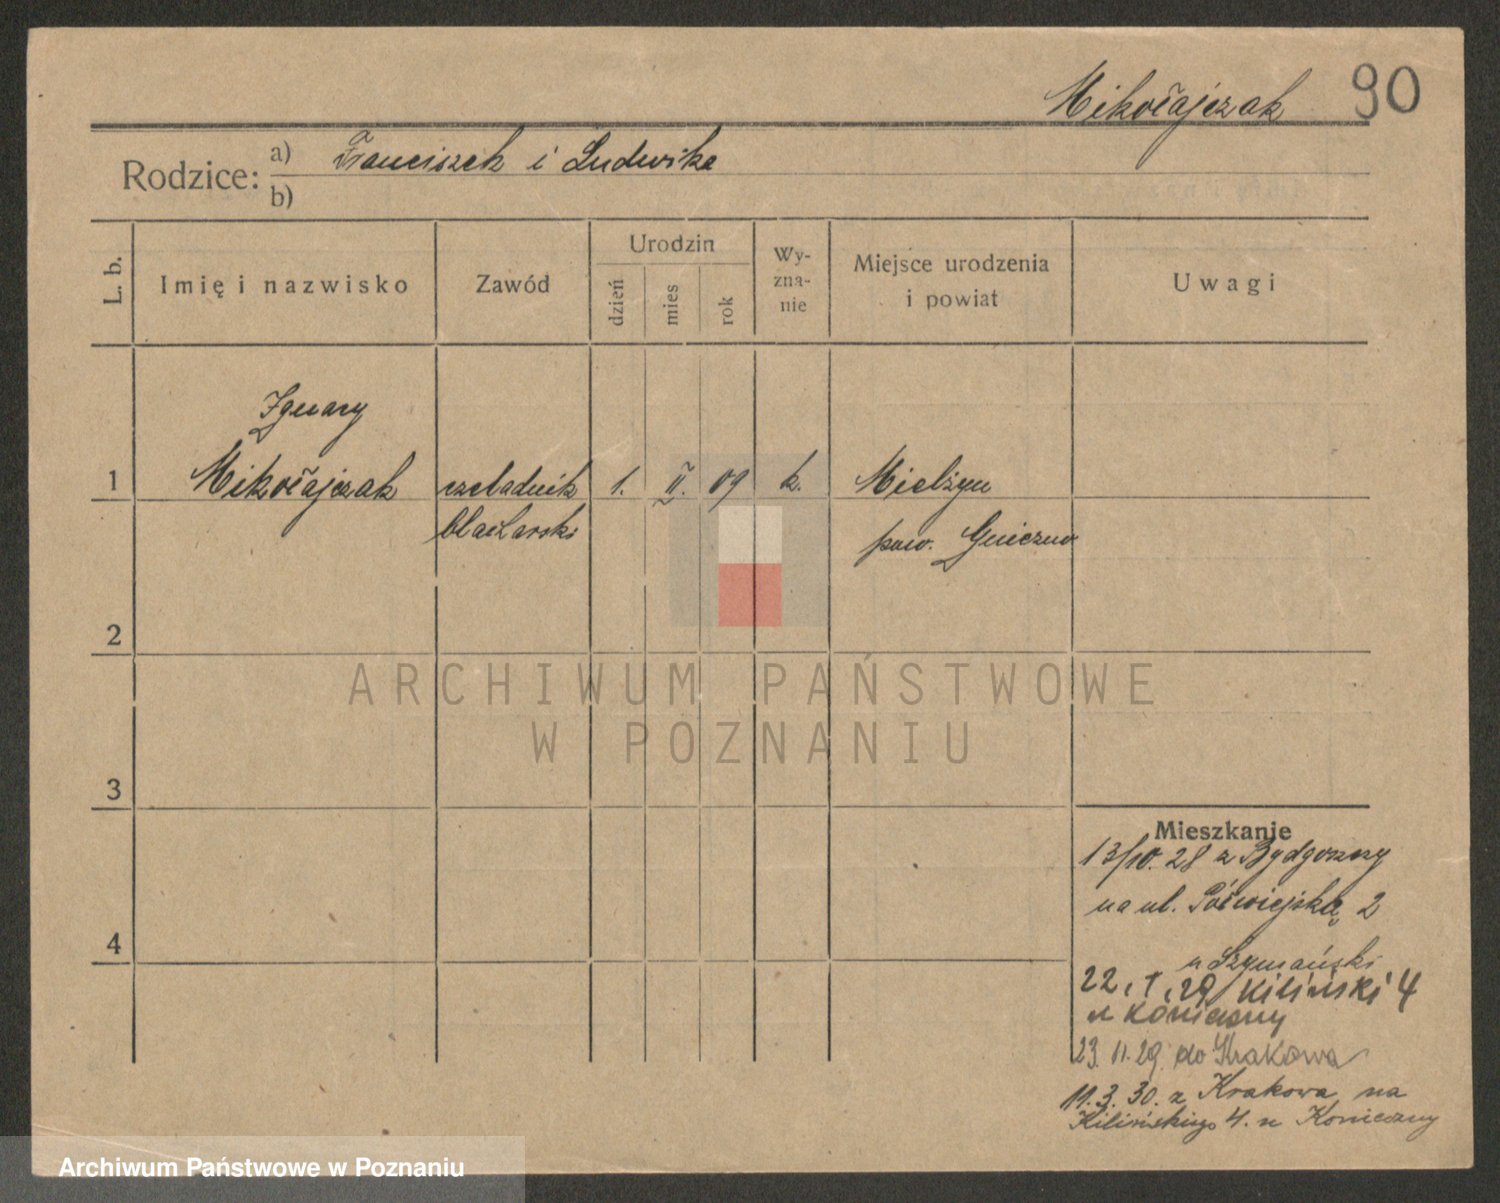 Mikołajczak 90
Rodzice: a) Franciszek i Ludwika
b)
L. b.
Imię i nazwisko
Zawód
Urodzin
dzień
mies
rok
Wy-
zna-
nie
Miejsce urodzenia
i powiat
Uwagi
Ignacy
1 Mikołajczak czeladnik 1. II. 09 k. Mielżyn
blacharski pow. Gniezno
2
3
4
Mieszkanie
13/10. 28 z Bydgoszczy
na ul. Półwiejską 2
u Szymański
22. 1. 29 Kiliński 4
u Konieczny
23. 11. 29. do Krakowa
11. 3. 30. z Krakowa na
Kilińskiego 4. u Konieczny
ARCHIWUM PAŃSTWOWE
W POZNANIU
Archiwum Państwowe w Poznaniu